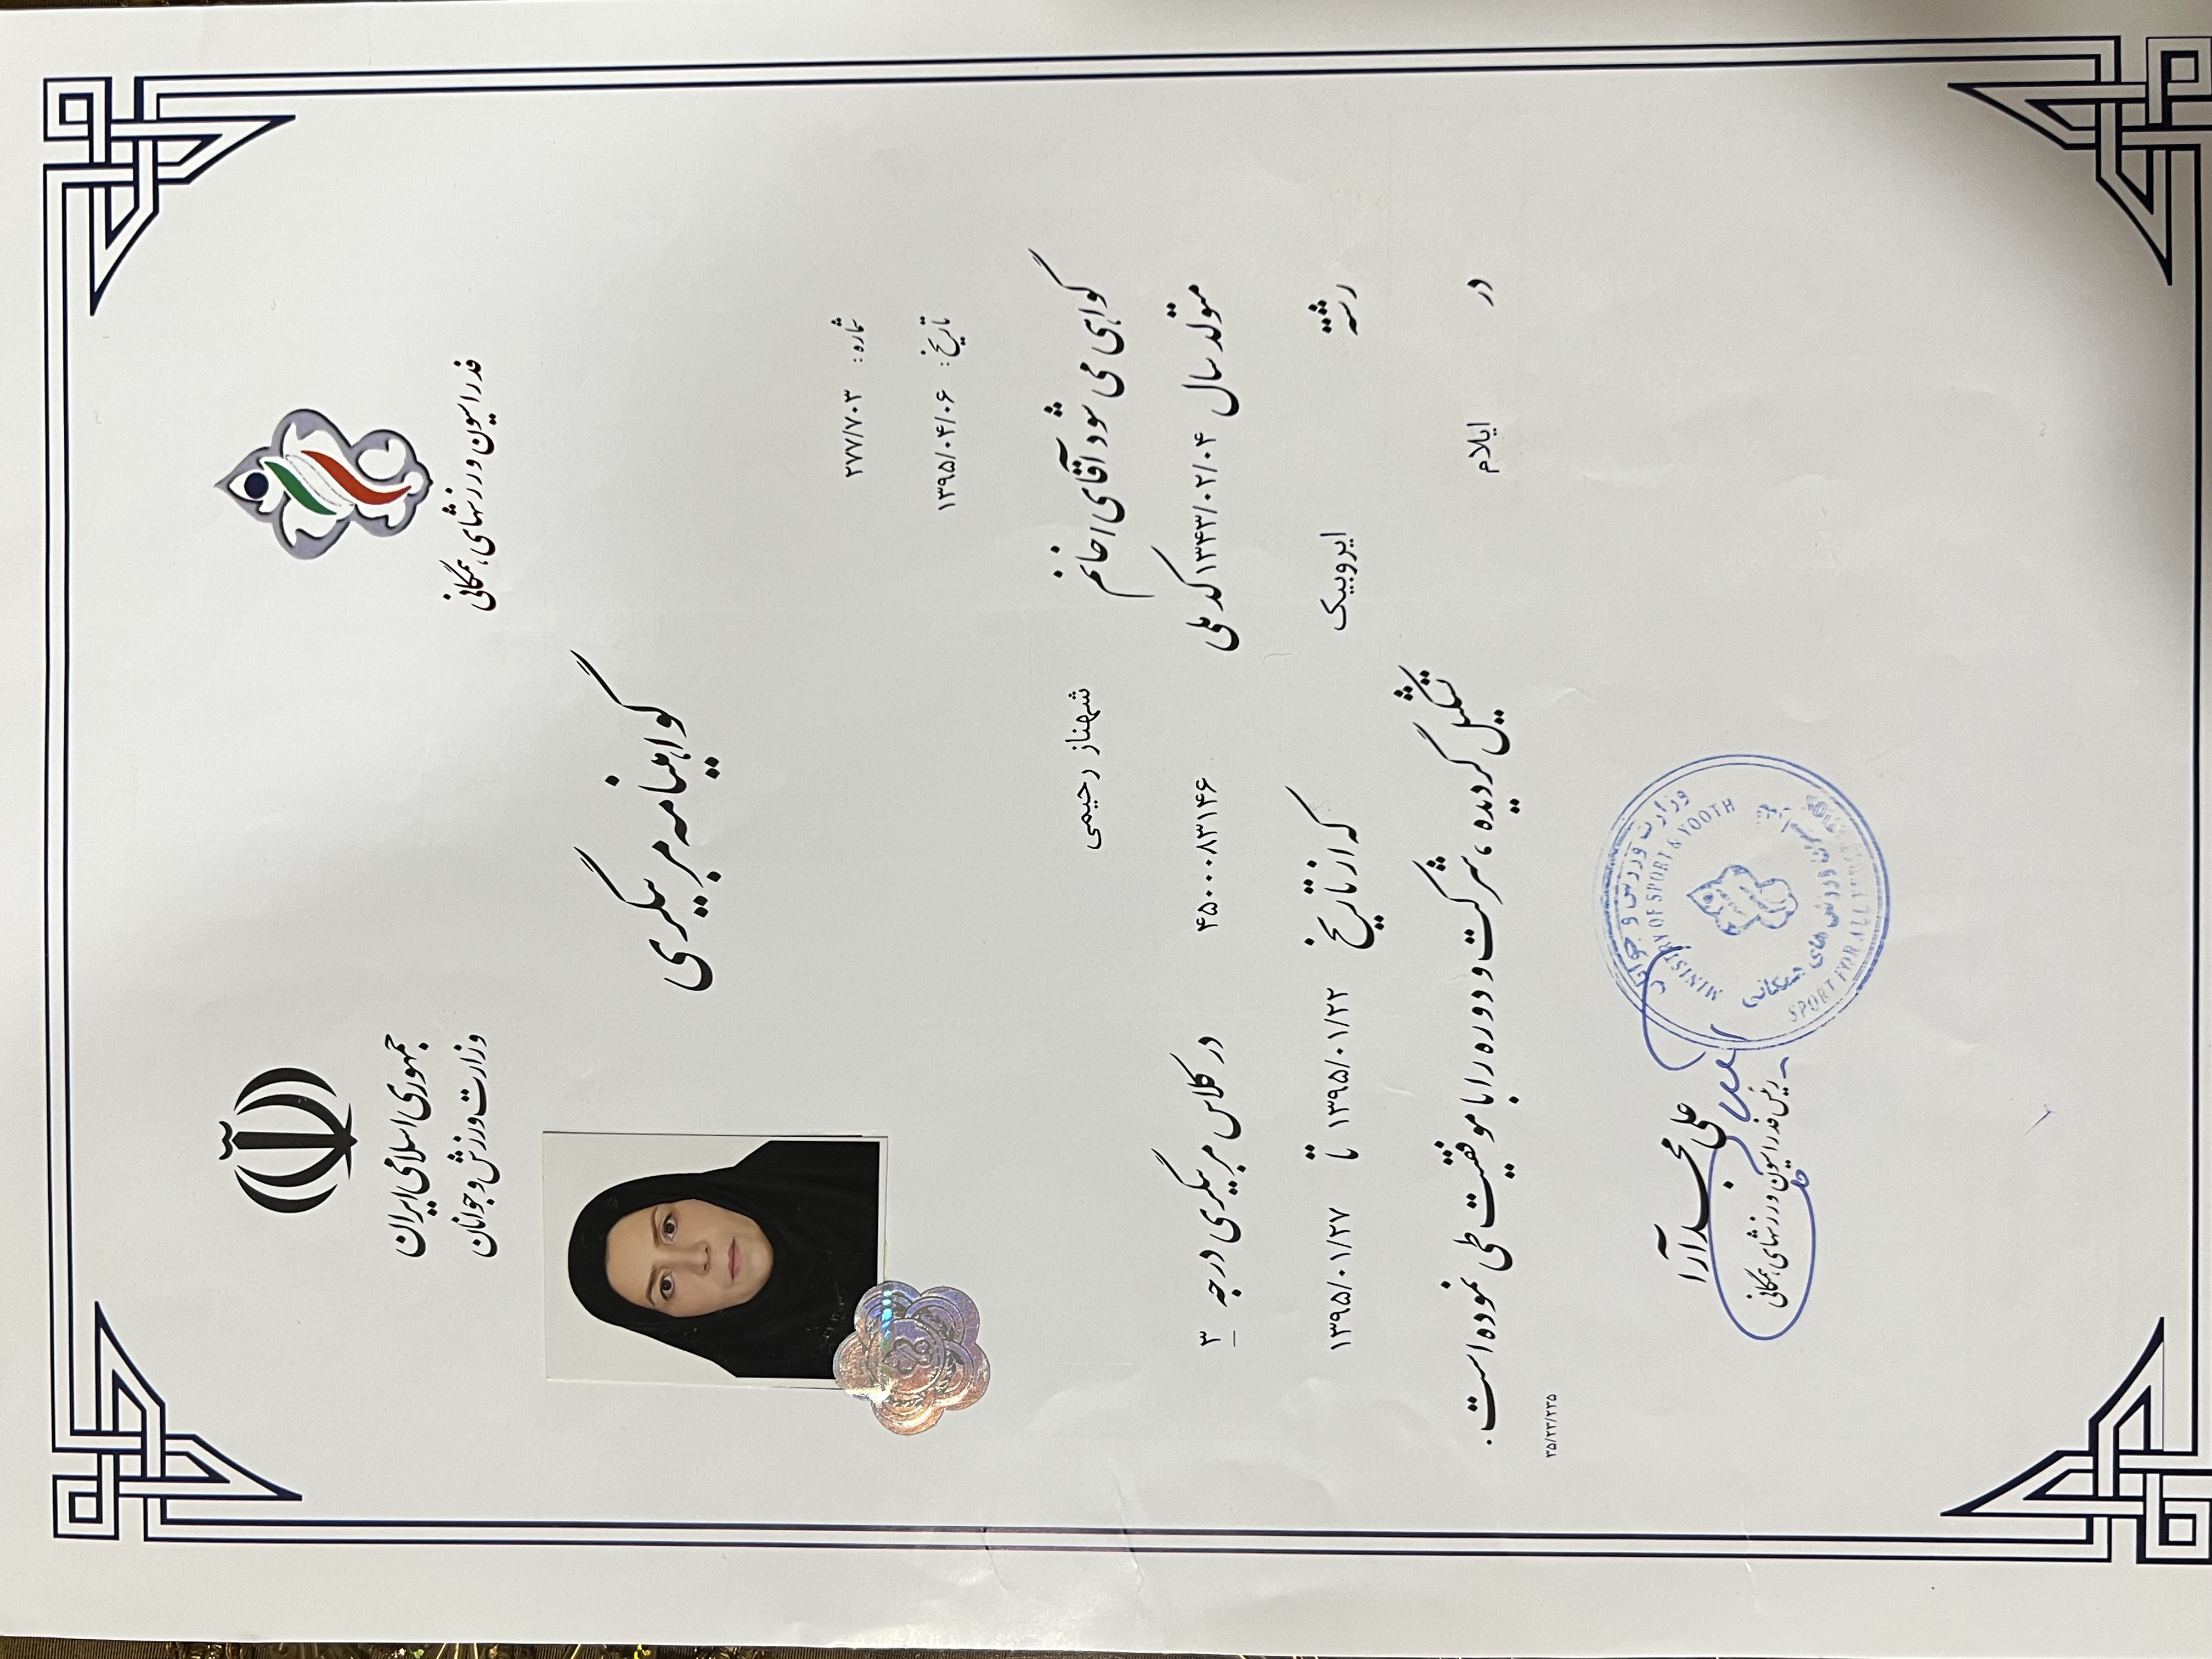 جمهوری اسلامی ایران
وزارت ورزش و جوانان
فدراسیون ورزشهای همگانی
گواهینامه مربیگری
شماره: ۲۷۷/۷۰۳
تاریخ: ۱۳۹۵/۰۴/۰۶
گواهی می شود آقای/خانم شهناز رحیمی
متولد سال ۱۳۴۳/۰۲/۰۴ کد ملی ۴۵۰۰۰۸۳۱۴۶ در کلاس مربیگری درجه ۳
رشته ایروبیک که از تاریخ ۱۳۹۵/۰۱/۲۲ تا ۱۳۹۵/۰۱/۲۷
در ایلام تشکیل گردیده، شرکت و دوره را با موفقیت طی نموده است.
۳۵/۲۳/۲۳۵
علی مجدآرا
رئیس فدراسیون ورزشهای همگانی
وزارت ورزش و جوانان
MINISTRY OF SPORT & YOOTH
ورزش های همگانی
SPORT FOR ALL